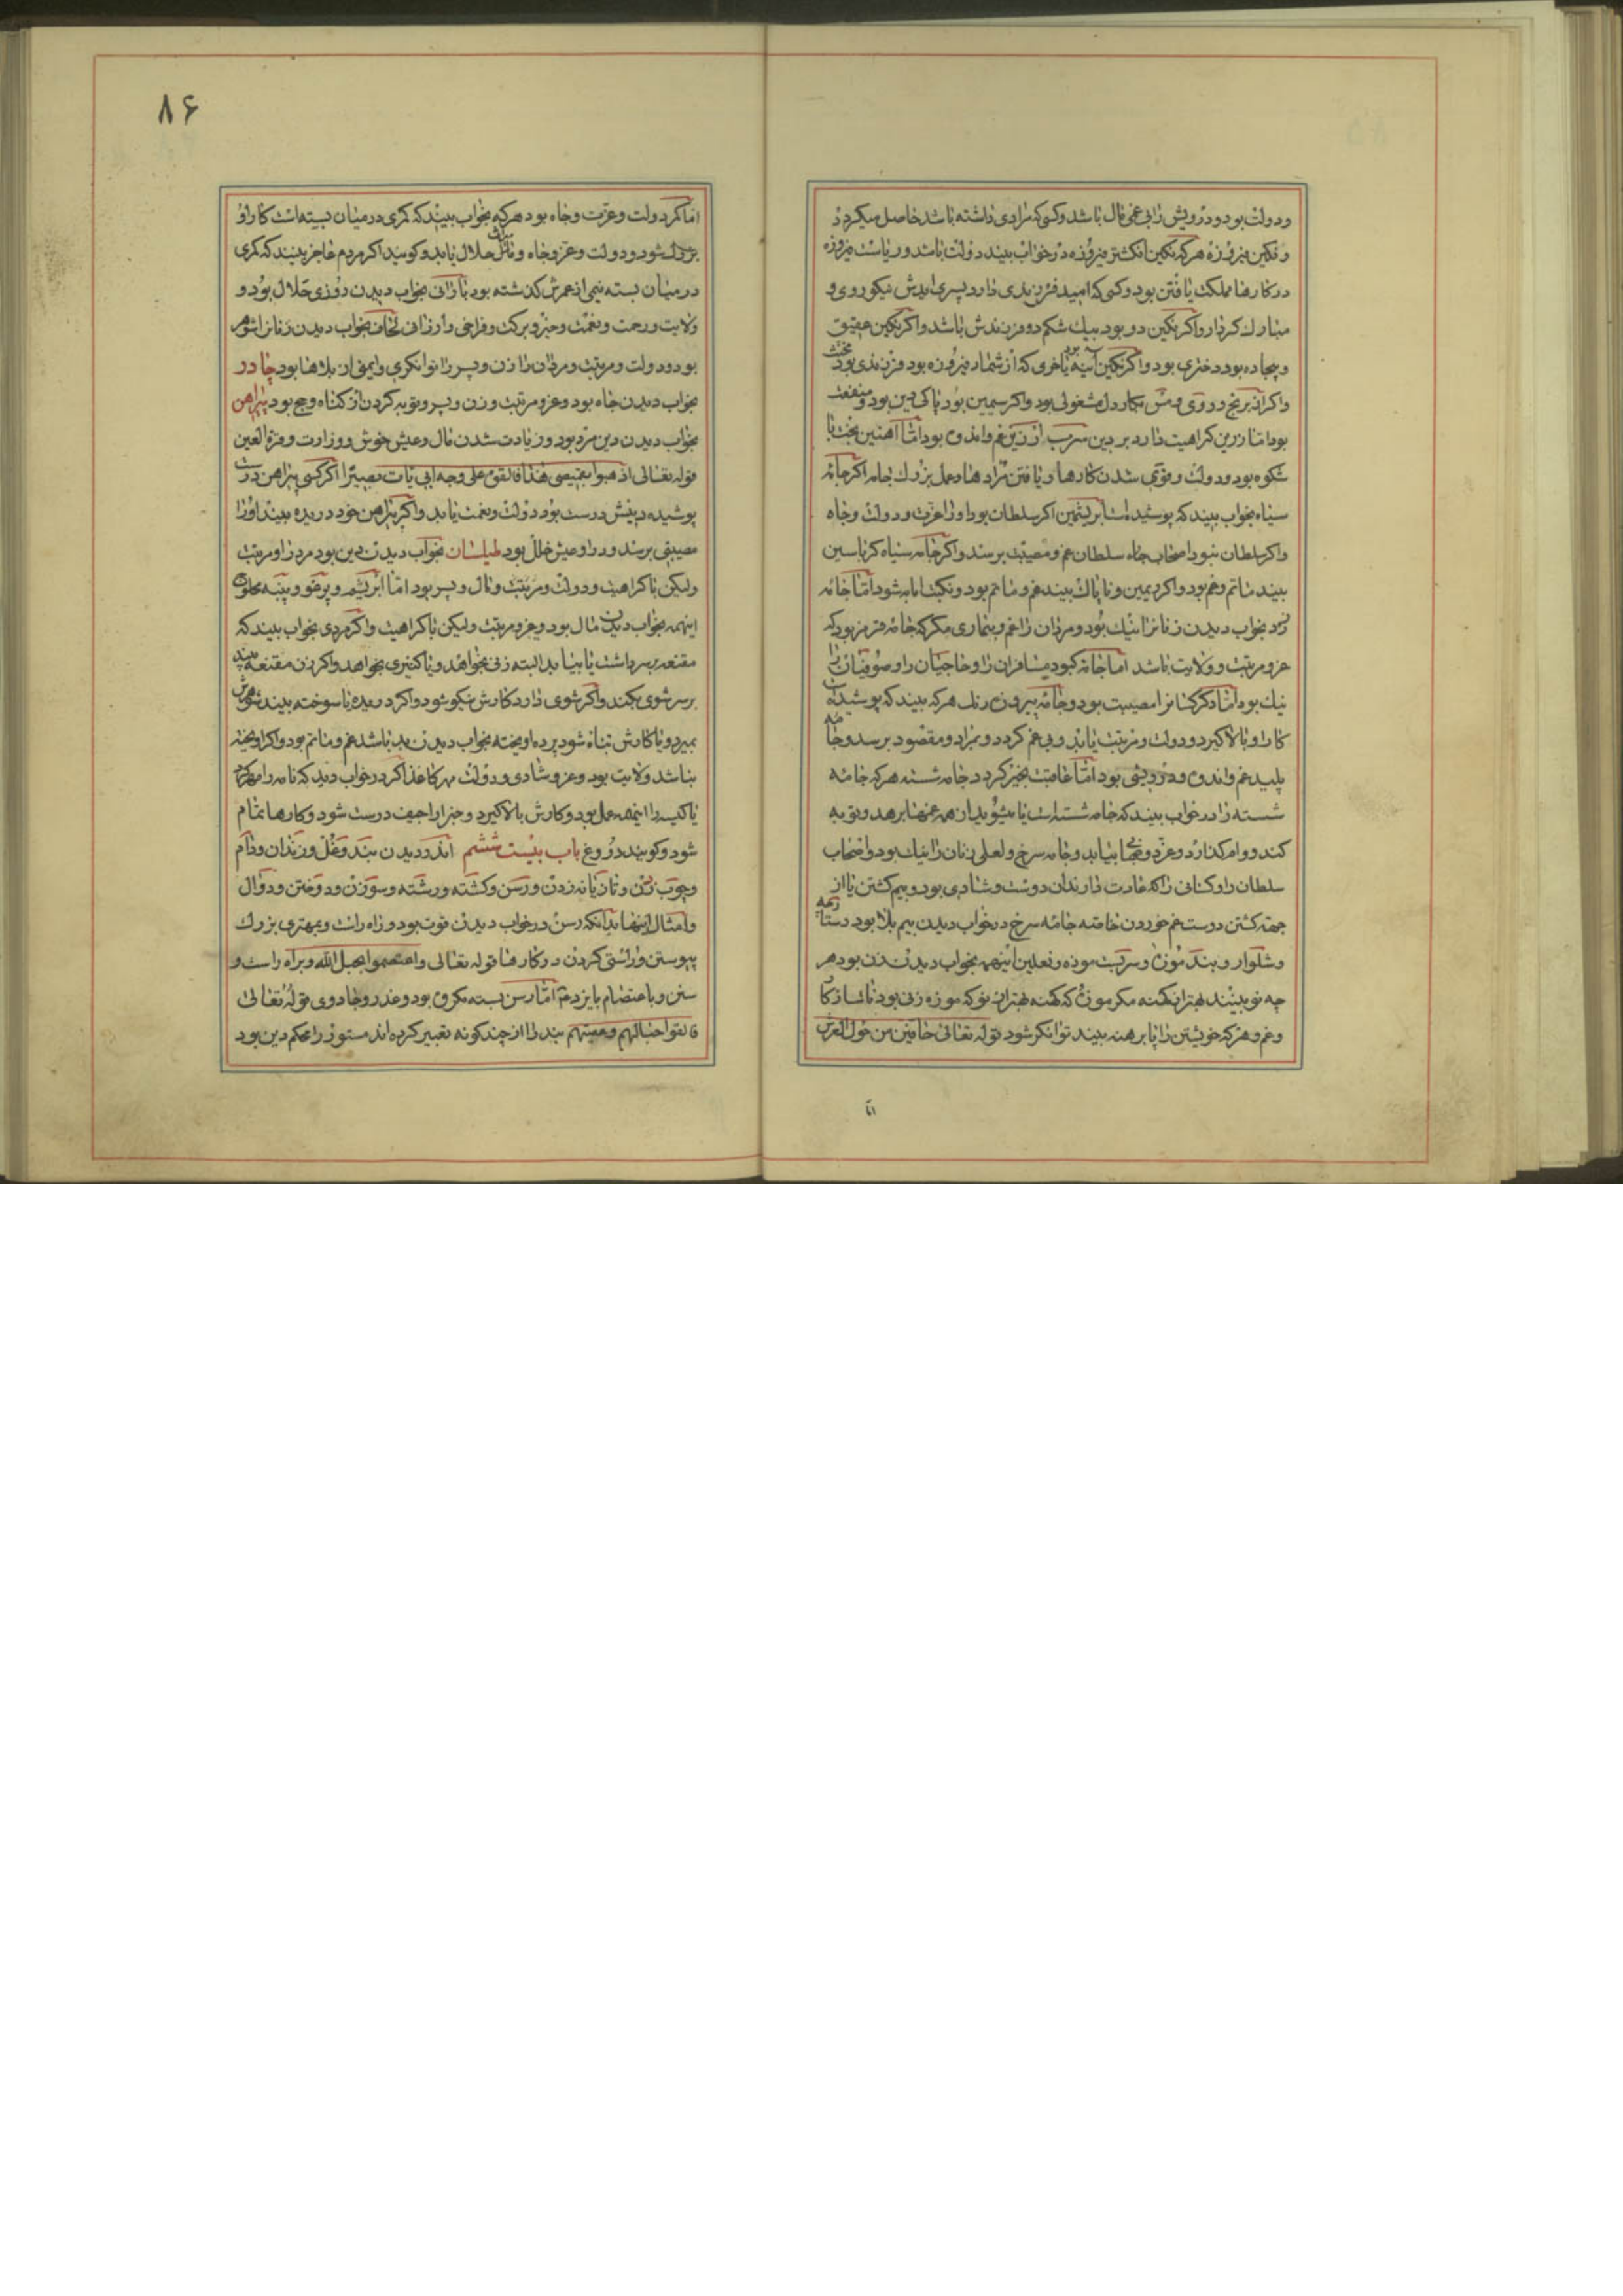 ودولت بود ودرویش را بی غمی مال باشد وکسی که مرادی داشته باشد حاصل میکردد
ونکین فیروزه هرکه نکین انکشتر فیروزه در خواب بیند دولت باشد وریاست فیروزه
در کارها مملکت یافتن بود وکسی که امید فرزندی دارد پسری ایدش نیکوروی و
مبارك کردار واکر نکین دو بود بیك شکم دو فرزندش باشد واکر نکین عقیق
وبیجاده بود دختری بود واکر نکین ابینه یا خری که از شمار فیروزه بود فرزندی بود مخنث
واکر از برنج و روی ومس بکار دل مشغولی بود واکر سیمین بود پاکی دین بود ومنفعت
بود اما زرین کراهیت دارد بر دین سرب از زیرغم واندوه بود اما اهنین بخت با
شکوه بود ودولت وقوی شدن کارها ویافتن مرادها وعمل بزرك جامه اکر جامه
سیاه بخواب بیند که پوشیده است ابریشمین اکر سلطان بود او را عزت ودولت وجاه
واکر سلطان نبود اصحاب جاه سلطان غم ومصیبت برسد واکر جامه سیاه کرباسین
بیند ماتم وغم بود واکر دیمین وناپاك بیند غم وماتم بود ونکبت شود اما جامه
زرد بخواب دیدن زنانرا نیك بود ومردان را غم وبیماری مکر که جامه قرمز بود که
عز ومرتبت وولایت باشد اما جامه کبود مسافران را وحاجیان را وصوفیان را
نیك بود اما دکر کسانرا مصیبت بود وجامه بیرون رنك هرکه بیند که پوشیده است
کار او بالا کیرد ودولت ومرتبت یابد وبی غم کردد وبمراد ومقصود برسد وجامه
پلید غم واندوه ودرویشی بود اما عاقبت بخیر کردد جامه شسته هرکه جامه
شسته را در خواب بیند که جامه شسته است یا بشوید از همه غمها برهد وتوبه
کند ووام کذارد وعز بیابد وجامه سرخ ولعلی زنان را نیك بود واصحاب
سلطان را وکسانی را که عادت دارند ان دوست وشادی بود وبیم کشتن یا از
جهة کشتن دوست غم خوردن خاصه جامه سرخ در خواب دیدن بیم بلا بود دستارچه
وشلوار وبند موزه وسرپت موزه ونعلین اینهمه بخواب دیدن زن بود هر
چه نو بینند بهتر از کهنه مکر موزه که کهنه بهتر از نو که موزه زنی بود ناسازکار
وغم وهرکه خویشتن را پا برهنه بیند توانکر شود قوله تعالی حافین من حول العرش
اما
۸۶
اما کمر دولت وعزت وجاه بود هرکه بخواب بیند که کمری در میان بسته است کار او
بزرك شود ودولت وعز وجاه ومال حلال یابد وکویند اکر مردم عاجز بینند که کمری
در میان بسته نیمی از عمرش کذشته بود بارانی بخواب دیدن روزی حلال بود و
ولایت ورحمت ونعمت وخیر وبرکت وفراخی وارزانی لحاف بخواب دیدن زنانرا شوهر
بود ودولت ومرتبت ومردان را زن وپسر را توانکری وایمنی از بلاها بود چادر
بخواب دیدن جاه بود وعز ومرتبت وزن وپسر وتوبه کردن از کناه وحج بود پیراهن
بخواب دیدن دین مرد بود وزیادت شدن مال وعیش خوش ووزارت وقرة العین
قوله تعالی اذهبوا بقمیصی هذا فالقوه علی وجه ابی یات بصیرا اکر کسی پیراهن درست
پوشیده دینش درست بود دولت ونعمت یابد واکر پیراهن خود دریده بیند او را
مصیبتی برسد ودر او عیش خلل بود طیلسان بخواب دیدن دین بود مرد را ومرتبت
ولیکن با کراهیت ودولت ومرتبت ومال وپسر بود اما ابریشم وپرقو وپنبه محلوج
اینهمه بخواب دیدن مال بود وعز ومرتبت ولیکن با کراهیت واکر مردی بخواب بیند که
مقنعه بسر داشت یا بیابد البته زنی بخواهد ویا کنیزی بخواهد واکر زن مقنعه بیند
برسر شوی بکند واکر شوی دارد کارش نیکو شود واکر دریده یا سوخته بیند شوهرش
بمیرد ویا کارش تباه شود پرده اویخته بخواب دیدن بد باشد غم وماتم بود واکر اویخته
نباشد ولایت بود وعز وشادی ودولت مهر کاغذ اکر در خواب دید که نامه را مهر کرد
یا کیسه را اینهمه عمل بود وکارش بالا کیرد وخبر اراجیف درست شود وکارها تمام
شود وکویند دروغ باب بیست ششم اندر دیدن بند وغل وزندان ودام
وچوب زدن وتازیانه زدن ورسن وکشته ورشته وسوزن ودوختن ودوال
وامثال اینها بدانکه رسن در خواب دیدن قوت بود وراه راست وبمهتری بزرك
پیوستن وراستی کردن در کارها قوله تعالی واعتصموا بحبل الله وبراه راست و
سنن وباعتصام بایزد عم اما رسن بسته مکروه بود وغدر وجادوی قوله تعالی
فالقوا حبالهم وعصیهم بند را از چند کونه تعبیر کرده اند مستور را محکم دین بود